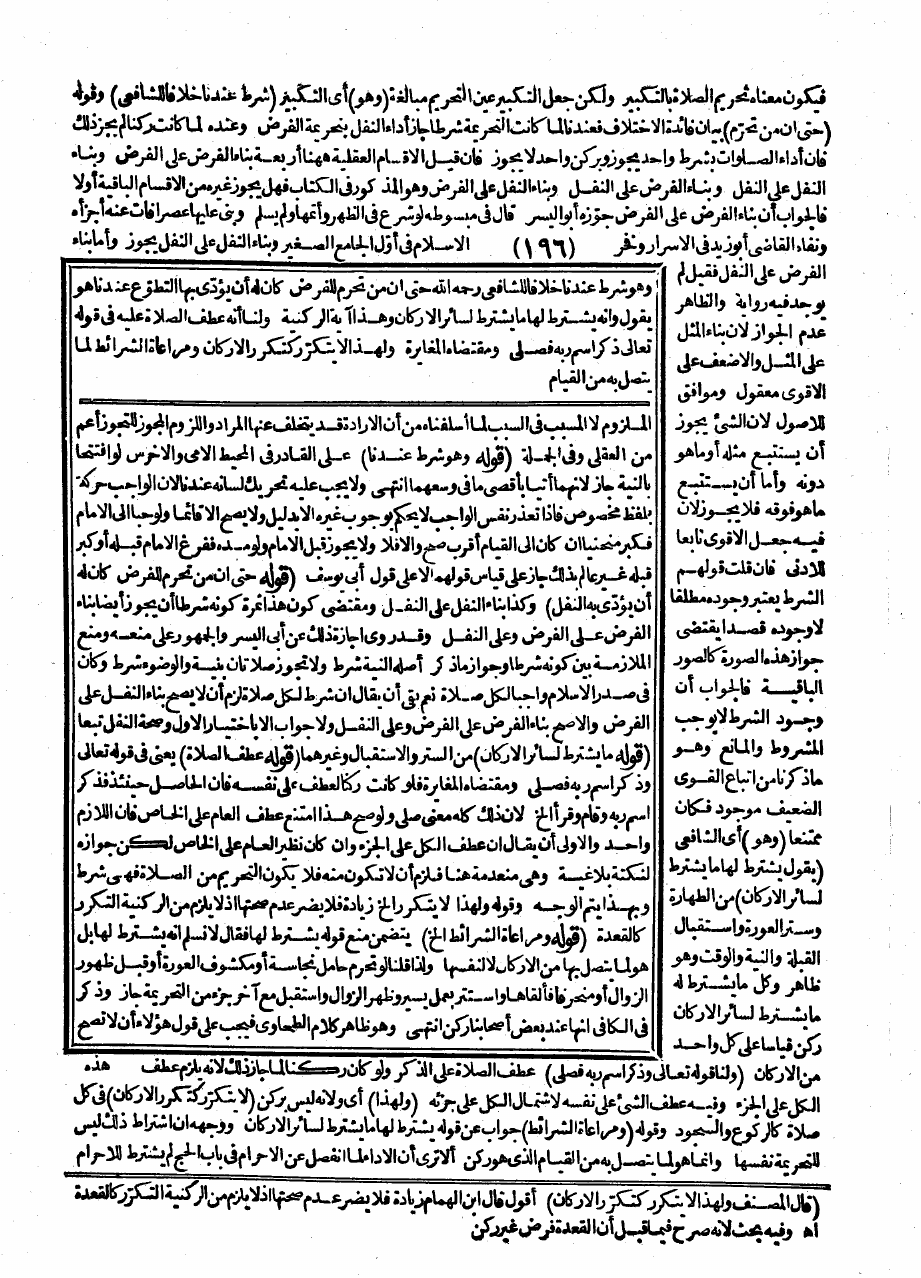 فيكون معناه تحريم الصلاة بالتكبير ولكن جعل التكبير عين التحريم مبالغة (وهو) أى التكبير (شرط عندنا خلافا للشافعى) وقوله
(حتى ان من تحرّم) بيان فائدة الاختلاف فعندنا لما كانت التحريمة شرطا جاز أداء النفل بتحريمة الفرض وعنده لما كانت ركنا لم يجز ذلك
فان أداء الصلوات بشرط واحد يجوز وبركن واحد لا يجوز فان قيل الاقسام العقلية ههنا أربعة بناء الفرض على الفرض وبناء
النفل على النفل وبناء الفرض على النفل وبناء النفل على الفرض وهو المذكور فى الكتاب فهل يجوز غيره من الاقسام الباقية أولا
فالجواب أن بناء الفرض على الفرض جوّزه أبو اليسر قال فى مبسوطه لو شرع فى الظهر وأتمها ولم يسلم وبنى عليها عصرا فات عنه أجزأه
ونفاه القاضى أبو زيد فى الاسرار وفخر (١٩٦) الاسلام فى أوّل الجامع الصغير وبناء النفل على النفل يجوز وأما بناء
الفرض على النفل فقيل لم
يوجد فيه رواية والظاهر
عدم الجواز لان بناء المثل
على المثل والاضعف على
الاقوى معقول وموافق
للاصول لان الشئ يجوز
أن يستتبع مثله أو ما هو
دونه وأما أن يستتبع
ما هو فوقه فلا يجوز لان
فيه جعل الاقوى تابعا
للادنى فان قلت قولهم
الشرط يعتبر وجوده مطلقا
لا وجوده قصدا يقتضى
جواز هذه الصورة كالصور
الباقية فالجواب أن
وجود الشرط لا يوجب
المشروط والمانع وهو
ما ذكرنا من اتباع القوى
الضعيف موجود فكان
ممتنعا (وهو) أى الشافعى
(يقول يشترط لها ما يشترط
لسائر الاركان) من الطهارة
وستر العورة واستقبال
القبلة والنية والوقت وهو
ظاهر وكل ما يشترط له
ما يشترط لسائر الاركان
ركن قياسا على كل واحد
وهو شرط عندنا خلافا للشافعى رحمه الله حتى ان من تحرم للفرض كان له أن يؤدّى بها التطوّع عندنا هو
يقول وانه يشترط لها ما يشترط لسائر الاركان وهذا آية الركنية ولنا أنه عطف الصلاة عليه فى قوله
تعالى وذكر اسم ربه فصلى ومقتضاه المغايرة ولهذا لا يتكرّر كتكرر الاركان ومراعاة الشرائط لما
يتصل به من القيام
الملزوم لا المسبب فى السبب لما أسلفناه من أن الارادة قد يتخلف عنها المراد واللزوم المجوّز للتجوز أعم
من العقلى وفى الجملة (قوله وهو شرط عندنا) على القادر فى المحيط الامى والاخرس لو افتتحا
بالنية جاز لانهما أتيا بأقصى ما فى وسعهما انتهى ولا يجب عليه تحريك لسانه عندنا لان الواجب حركة
بلفظ مخصوص فاذا تعذر نفس الواجب لا يحكم بوجوب غيره الا بدليل ولا يصح الا قائما ولو جاء الى الامام
فكبر منحنيا ان كان الى القيام أقرب صح والا فلا ولا يجوز قبل الامام ولو مده ففرغ الامام قبله أو كبر
قبله غير عالم بذلك جاز على قياس قولهم الا على قول أبى يوسف (قوله حتى ان من تحرم للفرض كان له
أن يؤدّى به النفل) وكذا بناء النفل على النفل ومقتضى كون هذا ثمرة كونه شرطا أن يجوز أيضا بناء
الفرض على الفرض وعلى النفل وقد روى اجازة ذلك عن أبى اليسر والجمهور على منعه ومنع
الملازمة بين كونه شرطا وجواز ما ذكر أصله النية شرط ولا تجوز صلاتان بنية والوضوء شرط وكان
فى صدر الاسلام واجبا لكل صلاة نعم بقى أن يقال ان شرط لكل صلاة لزم أن لا يصح بناء النفل على
الفرض والا صح بناء الفرض على الفرض وعلى النفل ولا جواب الا باختيار الاول وصحة النفل تبعا
(قوله ما يشترط لسائر الاركان) من الستر والاستقبال وغيرهما (قوله عطف الصلاة) يعنى فى قوله تعالى
وذكر اسم ربه فصلى ومقتضاه المغايرة فلو كانت ركنا لعطف على نفسه فان الحاصل حينئذ فذكر
اسم ربه وقام وقرأ الخ لان ذلك كله معنى صلى ولو صح هذا امتنع عطف العام على الخاص فان اللازم
واحد والاولى أن يقال ان عطف الكل على الجزء وان كان نظير العام على الخاص لكن جوازه
لنكتة بلاغية وهى منعدمة هنا فلزم أن لا تكون منه فلا يكون التحريم من الصلاة فهى شرط
وبهذا يتم الوجه وقوله ولهذا لا يتكرر الخ زيادة فلا يضر عدم صحتها اذ لا يلزم من الركنية التكرر
كالقعدة (قوله ومراعاة الشرائط الخ) يتضمن منع قوله يشترط لها فقال لا نسلم انه يشترط لها بل
هو لما يتصل بها من الاركان لا لنفسها ولذا قلنا لو تحرم حامل نجاسة أو مكشوف العورة أو قبل ظهور
الزوال أو منحرفا فألقاها واستتر بعمل يسير وظهر الزوال واستقبل مع آخر جزء من التحريمة جاز وذكر
فى الكافى انها عند بعض أصحابنا ركن انتهى وهو ظاهر كلام الطحاوى فيجب على قول هؤلاء أن لا تصح
من الاركان (ولنا قوله تعالى وذكر اسم ربه فصلى) عطف الصلاة على الذكر ولو كان ركنا لما جاز ذلك لانه يلزم عطف هذه
الكل على الجزء وفيه عطف الشئ على نفسه لاشتمال الكل على جزئه (ولهذا) أى ولانه ليس بركن (لا يتكرّر كتكرر الاركان) فى كل
صلاة كالركوع والسجود وقوله (ومراعاة الشرائط) جواب عن قوله يشترط لها ما يشترط لسائر الاركان ووجهه ان اشتراط ذلك ليس
للتحريمة نفسها وانما هو لما يتصل به من القيام الذى هو ركن ألا ترى أن الاداء لما انفصل عن الاحرام فى باب الحج لم يشترط للاحرام
(قال المصنف ولهذا لا يتكرر كتكرّر الاركان) أقول قال ابن الهمام زيادة فلا يضر عدم صحتها اذ لا يلزم من الركنية التكرّر كالقعدة
اه وفيه بحث لانه صرح فيما قبل أن القعدة فرض غير ركن